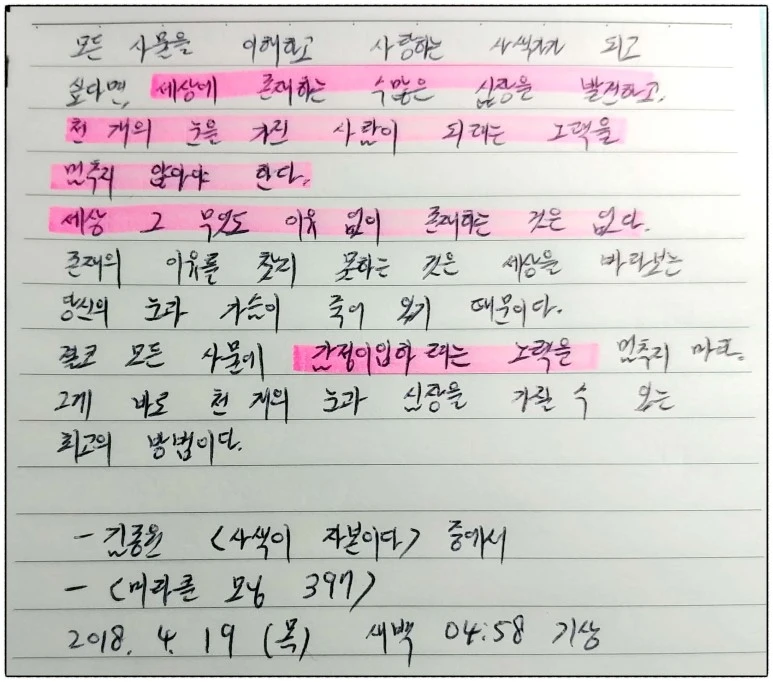 모든 사물을 이해하고 사랑하는 사색자가 되고
싶다면, 세상에 존재하는 수많은 심장을 발견하고,
천 개의 눈을 가진 사람이 되려는 노력을
멈추지 않아야 한다.
세상 그 무엇도 이유 없이 존재하는 것은 없다.
존재의 이유를 찾지 못하는 것은 세상을 바라보는
당신의 눈과 가슴이 죽어 있기 때문이다.
결코 모든 사물에 감정이입하려는 노력을 멈추지 마라.
그게 바로 천 개의 눈과 심장을 가질 수 있는
최고의 방법이다.
- 김종원 <사색이 자본이다> 중에서
- <미라클 모닝 397>
2018. 4. 19 (목) 새벽 04:58 기상